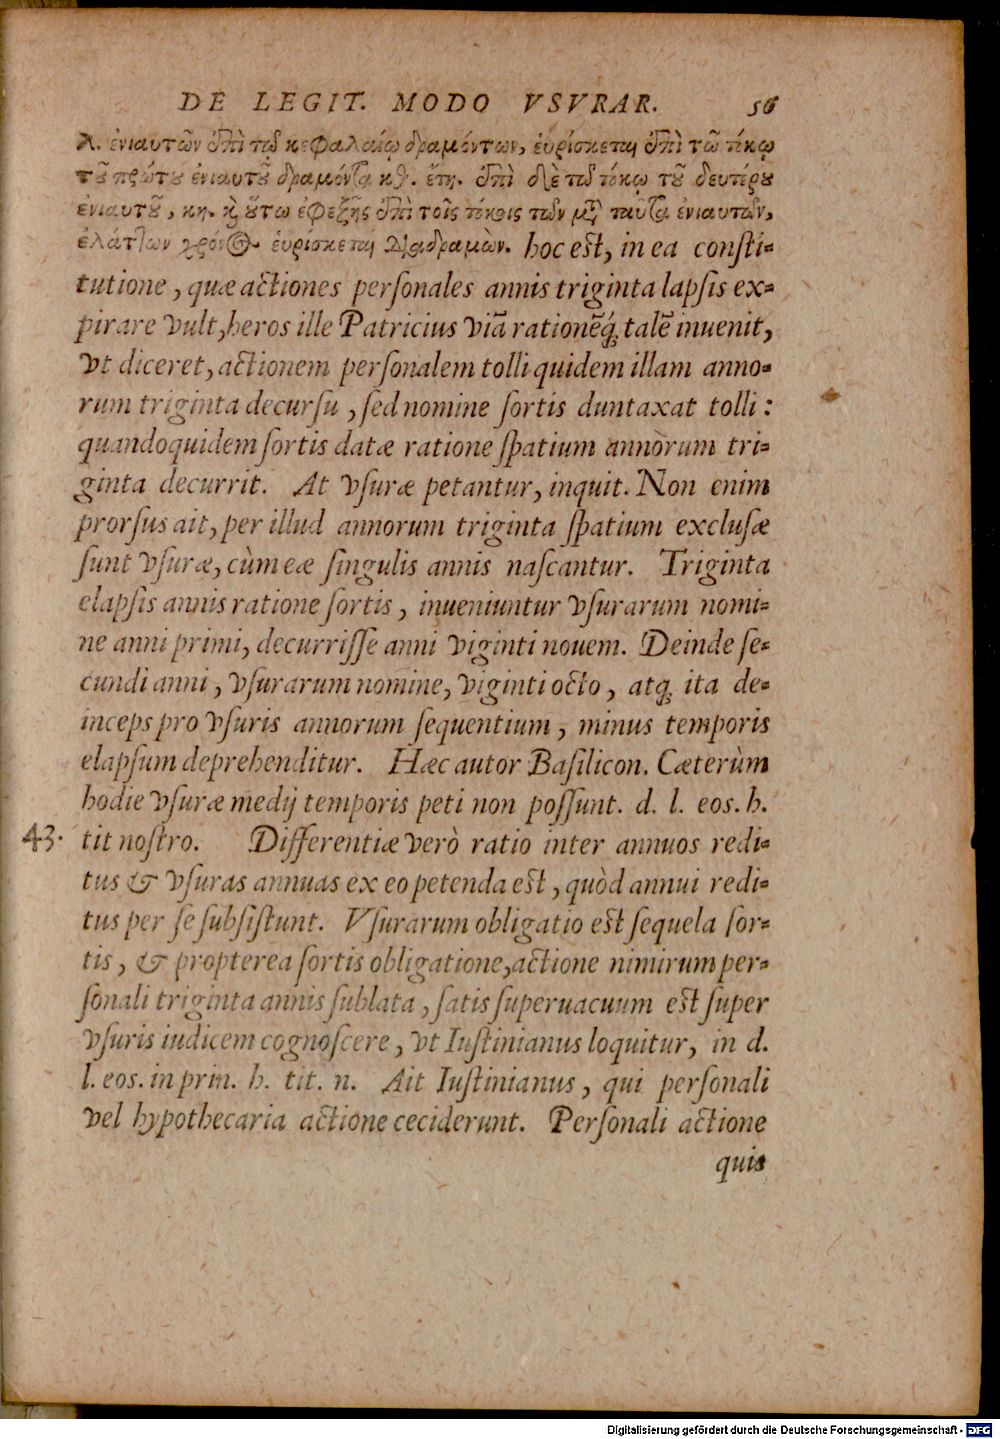 DE LEGIT. MODO VSVRAR. 56
λ. ἐνιαυτῶν ἐπὶ τῷ κεφαλαίῳ δραμόντων, εὑρίσκεται ἐπὶ τῶ τόκῳ
τοῦ πρώτου ἐνιαυτοῦ δραμόντα κθ. ἔτη. ἐπὶ δὲ τῷ τόκῳ τοῦ δευτέρου
ἐνιαυτοῦ, κη. καὶ οὕτω ἐφεξῆς ἐπὶ τοῖς τόκοις τῶν μετὰ ταῦτα ἐνιαυτῶν,
ἐλάττων χρόνος εὑρίσκεται διαδραμὼν. hoc est, in ea consti-
tutione, quæ actiones personales annis triginta lapsis ex-
pirare vult, heros ille Patricius viā rationēq́; talē inuenit,
vt diceret, actionem personalem tolli quidem illam anno-
rum triginta decursu, sed nomine sortis duntaxat tolli:
quandoquidem sortis datæ ratione spatium annorum tri-
ginta decurrit. At vsuræ petantur, inquit. Non enim
prorsus ait, per illud annorum triginta spatium exclusæ
sunt vsuræ, cùm eæ singulis annis nascantur. Triginta
elapsis annis ratione sortis, inueniuntur vsurarum nomi-
ne anni primi, decurrisse anni viginti nouem. Deinde se-
cundi anni, vsurarum nomine, viginti octo, atq; ita de-
inceps pro vsuris annorum sequentium, minus temporis
elapsum deprehenditur. Hæc autor Basilicon. Cæterùm
hodie vsuræ medij temporis peti non possunt. d. l. eos. h.
43. tit nostro. Differentiæ verò ratio inter annuos redi-
tus & vsuras annuas ex eo petenda est, quòd annui redi-
tus per se subsistunt. Vsurarum obligatio est sequela sor-
tis, & propterea sortis obligatione, actione nimirum per-
sonali triginta annis sublata, satis superuacuum est super
vsuris iudicem cognoscere, vt Iustinianus loquitur, in d.
l. eos. in prin. h. tit. n. Ait Iustinianus, qui personali
vel hypothecaria actione ceciderunt. Personali actione
quis
Digitalisierung gefördert durch die Deutsche Forschungsgemeinschaft - DFG